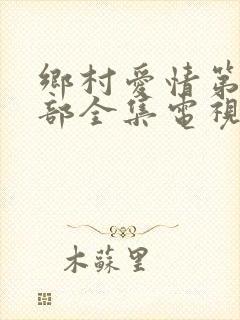 鄉村愛情第
部全集電視
木蘇里